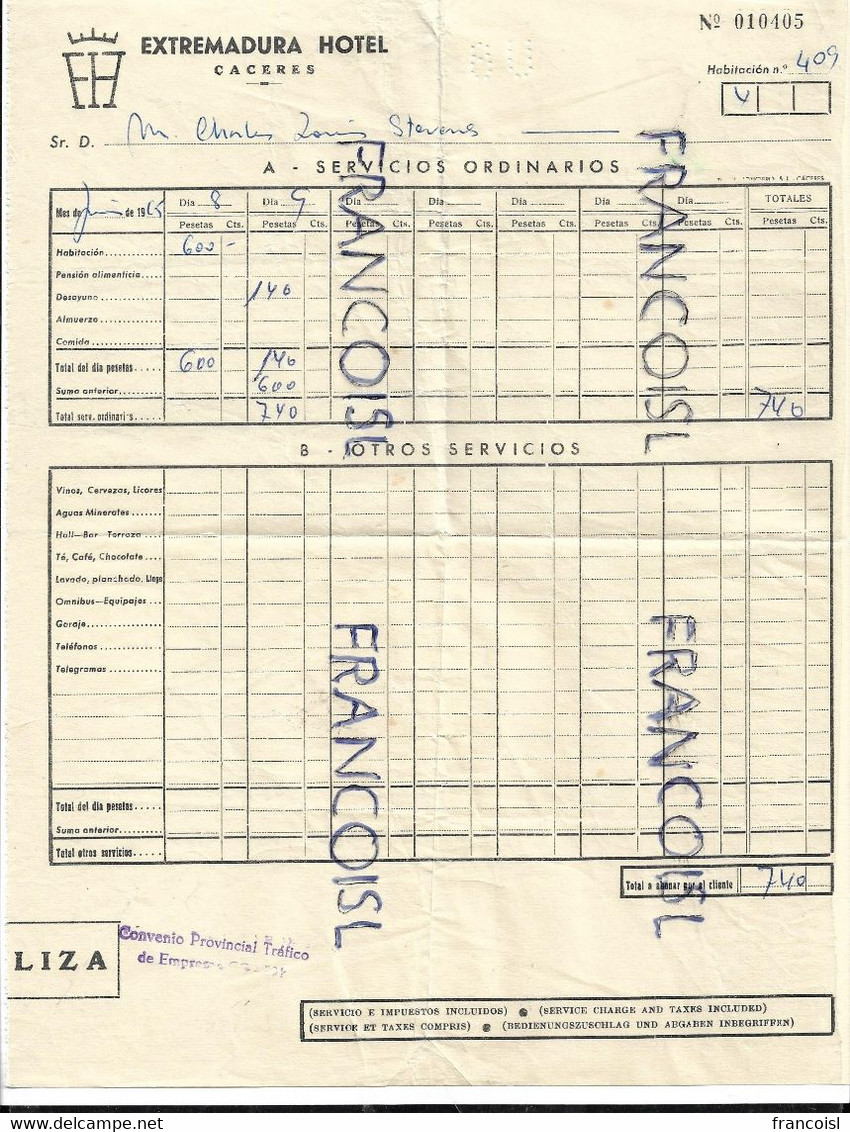 Nº 010405
EH
EXTREMADURA HOTEL
CACERES
Habitación n.º 409
Sr. D. M. Charles Louis Stevens
A - SERVICIOS ORDINARIOS
Mes de Junio de 196
Día 8 Día 9 Día Día Día Día Día TOTALES
Pesetas Cts. Pesetas Cts. Pesetas Cts. Pesetas Cts. Pesetas Cts. Pesetas Cts. Pesetas Cts. Pesetas Cts.
Habitación 600-
Pensión alimenticia
Desayuno 140
Almuerzo
Comida
Total del día pesetas 600 140
Suma anterior 600
Total serv. ordinarios 740 740
B - OTROS SERVICIOS
Vinos, Cervezas, Licores
Aguas Minerales
Hall-Bar Terraza
Té, Café, Chocolate
Lavado, planchado, Llega
Omnibus-Equipajes
Garaje
Teléfonos
Telegramas
Total del día pesetas
Suma anterior
Total otros servicios
Total a abonar por el cliente 740
LIZA
Convenio Provincial Tráfico
de Empresa
(SERVICIO E IMPUESTOS INCLUIDOS) ● (SERVICE CHARGE AND TAXES INCLUDED)
(SERVICE ET TAXES COMPRIS) ● (BEDIENUNGSZUSCHLAG UND ABGABEN INBEGRIFFEN)
FRANCOISL
FRANCOISL
FRANCOISL
FRANCOISL
delcampe.net
francoisl